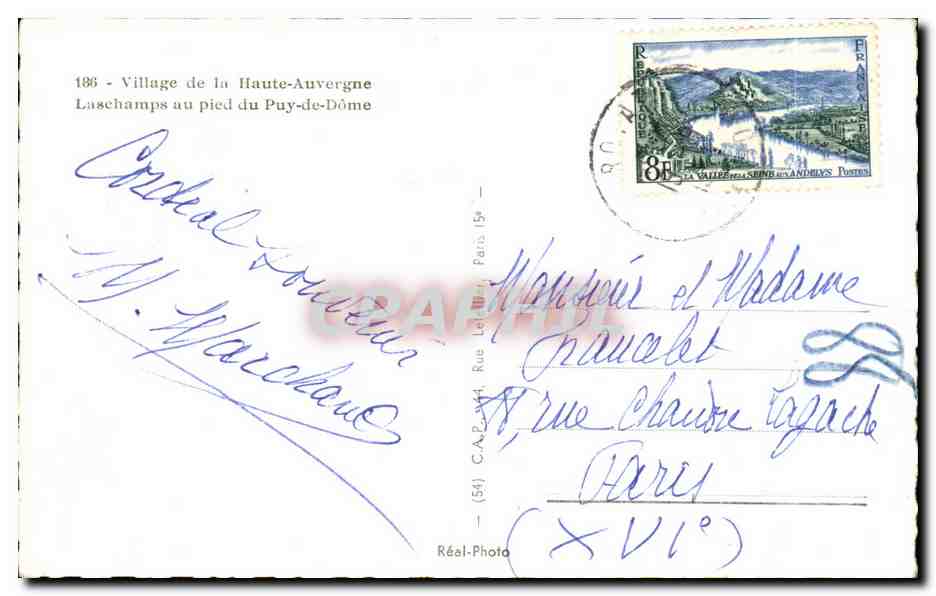 186 - Village de la Haute-Auvergne
Laschamps au pied du Puy-de-Dôme
REPUBLIQUE FRANÇAISE
8F LA VALLEE DE LA SEINE AUX ANDELYS POSTES
Cordial souvenir
M. Marchand
CPAPHIL
(54) C.A.P. - 44, Rue Letellier, Paris 15e
Monsieur et Madame
rue Chardon Lagache
Paris
(XVIe)
88
Réal-Photo